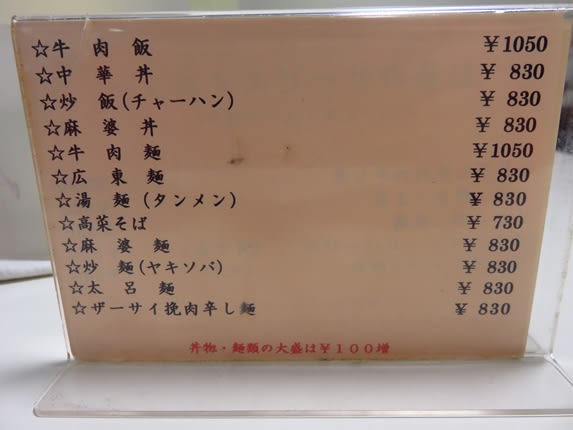 ☆牛肉飯 ¥1050
☆中華丼 ¥ 830
☆炒飯(チャーハン) ¥ 830
☆麻婆丼 ¥ 830
☆牛肉麺 ¥1050
☆広東麺 ¥ 830
☆湯麺(タンメン) ¥ 830
☆高菜そば ¥ 730
☆麻婆麺 ¥ 830
☆炒麺(ヤキソバ) ¥ 830
☆太呂麺 ¥ 830
☆ザーサイ挽肉辛し麺 ¥ 830
丼物・麺類の大盛は¥100増